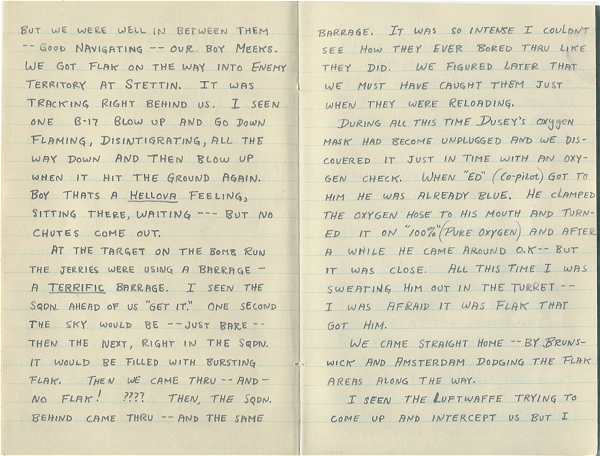 BUT WE WERE WELL IN BETWEEN THEM
-- GOOD NAVIGATING -- OUR BOY MEEKS.
WE GOT FLAK ON THE WAY INTO ENEMY
TERRITORY AT STETTIN. IT WAS
TRACKING RIGHT BEHIND US. I SEEN
ONE B-17 BLOW UP AND GO DOWN
FLAMING, DISINTIGRATING, ALL THE
WAY DOWN AND THEN BLOW UP
WHEN IT HIT THE GROUND AGAIN.
BOY THATS A HELLOVA FEELING,
SITTING THERE, WAITING --- BUT NO
CHUTES COME OUT.
AT THE TARGET ON THE BOMB RUN
THE JERRIES WERE USING A BARRAGE -
A TERRIFIC BARRAGE. I SEEN THE
SQDN. AHEAD OF US "GET IT." ONE SECOND
THE SKY WOULD BE -- JUST BARE --
THEN THE NEXT, RIGHT IN THE SQDN.
IT WOULD BE FILLED WITH BURSTING
FLAK. THEN WE CAME THRU -- AND -
NO FLAK! ???? THEN, THE SQDN.
BEHIND CAME THRU -- AND THE SAME
BARRAGE. IT WAS SO INTENSE I COULDNT
SEE HOW THEY EVER BORED THRU LIKE
THEY DID. WE FIGURED LATER THAT
WE MUST HAVE CAUGHT THEM JUST
WHEN THEY WERE RELOADING.
DURING ALL THIS TIME DUSEY'S OXYGEN
MASK HAD BECOME UNPLUGGED AND WE DIS-
COVERED IT JUST IN TIME WITH AN OXY-
GEN CHECK. WHEN "ED" (CO-PILOT) GOT TO
HIM HE WAS ALREADY BLUE. HE CLAMPED
THE OXYGEN HOSE TO HIS MOUTH AND TURN-
ED IT ON "100%" (PURE OXYGEN) AND AFTER
A WHILE HE CAME AROUND O.K -- BUT
IT WAS CLOSE. ALL THIS TIME I WAS
SWEATING HIM OUT IN THE TURRET --
I WAS AFRAID IT WAS FLAK THAT
GOT HIM.
WE CAME STRAIGHT HOME -- BY BRUNS-
WICK AND AMSTERDAM DODGING THE FLAK
AREAS ALONG THE WAY.
I SEEN THE LUFTWAFFE TRYING TO
COME UP AND INTERCEPT US BUT I